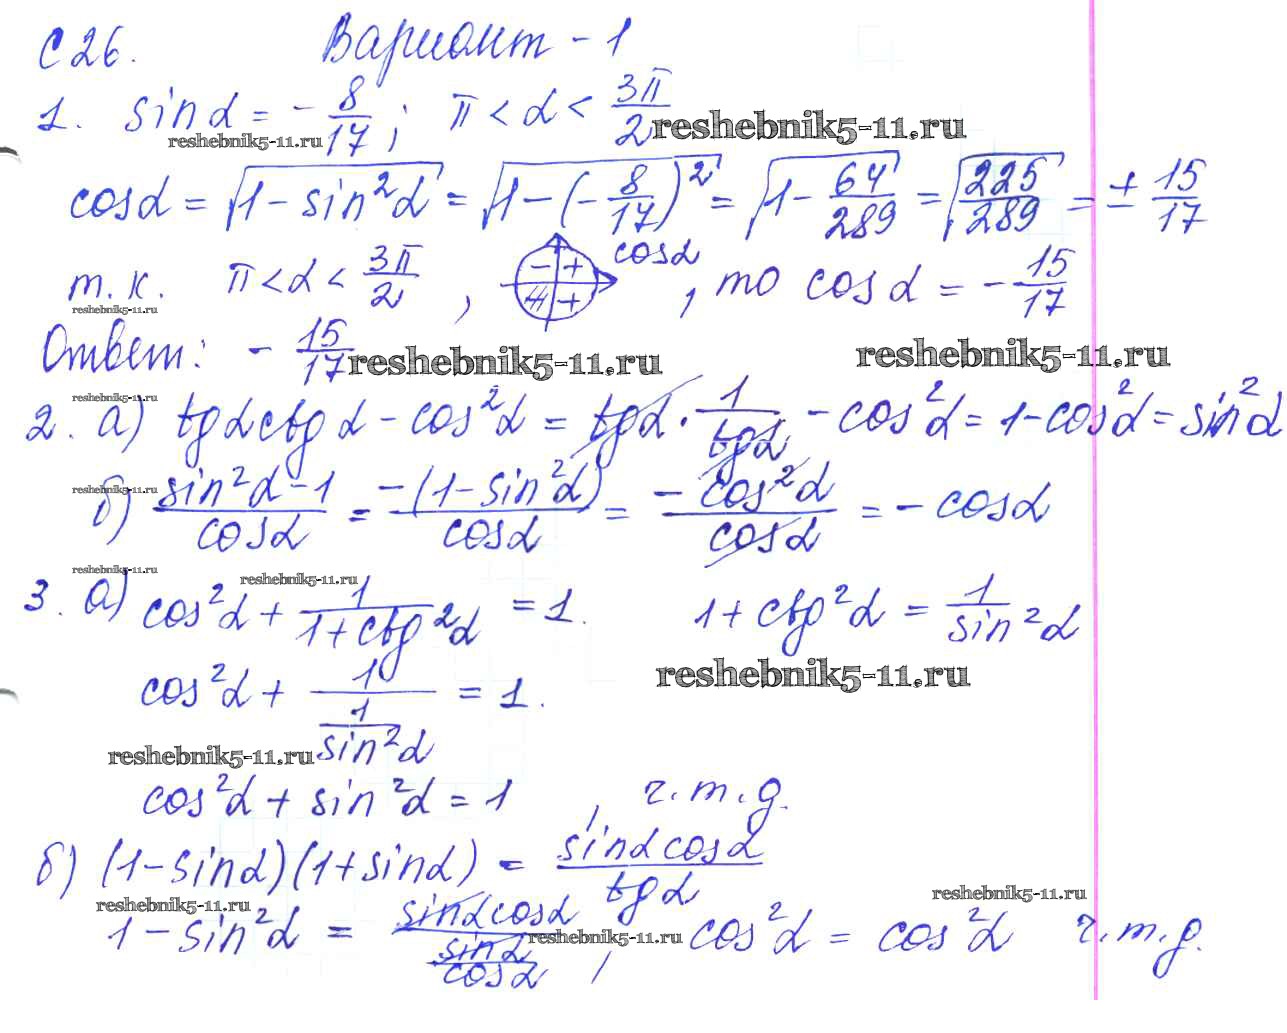 С 26. Вариант - 1
1. sin α = - 8/17 ; π < α < 3π/2 reshebnik5-11.ru
reshebnik5-11.ru
cos α = √(1 - sin²α) = √(1 - (- 8/17)²) = √(1 - 64/289) = √(225/289) = ± 15/17
т.к. π < α < 3π/2 , - + + cos α , то cos α = - 15/17
reshebnik5-11.ru
Ответ: - 15/17 reshebnik5-11.ru reshebnik5-11.ru
reshebnik5-11.ru
2. а) tg α ctg α - cos²α = tg α · 1/tg α - cos²α = 1 - cos²α = sin²α
reshebnik5-11.ru
б) (sin²α - 1)/cos α = -(1 - sin²α)/cos α = - cos²α/cos α = - cos α
reshebnik5-11.ru reshebnik5-11.ru
3. а) cos²α + 1/(1 + ctg²α) = 1. 1 + ctg²α = 1/sin²α
reshebnik5-11.ru
cos²α + 1/(1/sin²α) = 1.
reshebnik5-11.ru
cos²α + sin²α = 1 , ч.т.д.
б) (1 - sin α)(1 + sin α) = sin α cos α/tg α
reshebnik5-11.ru reshebnik5-11.ru
1 - sin²α = sin α cos α/(sin α/cos α) , cos²α = cos²α ч.т.д.
reshebnik5-11.ru